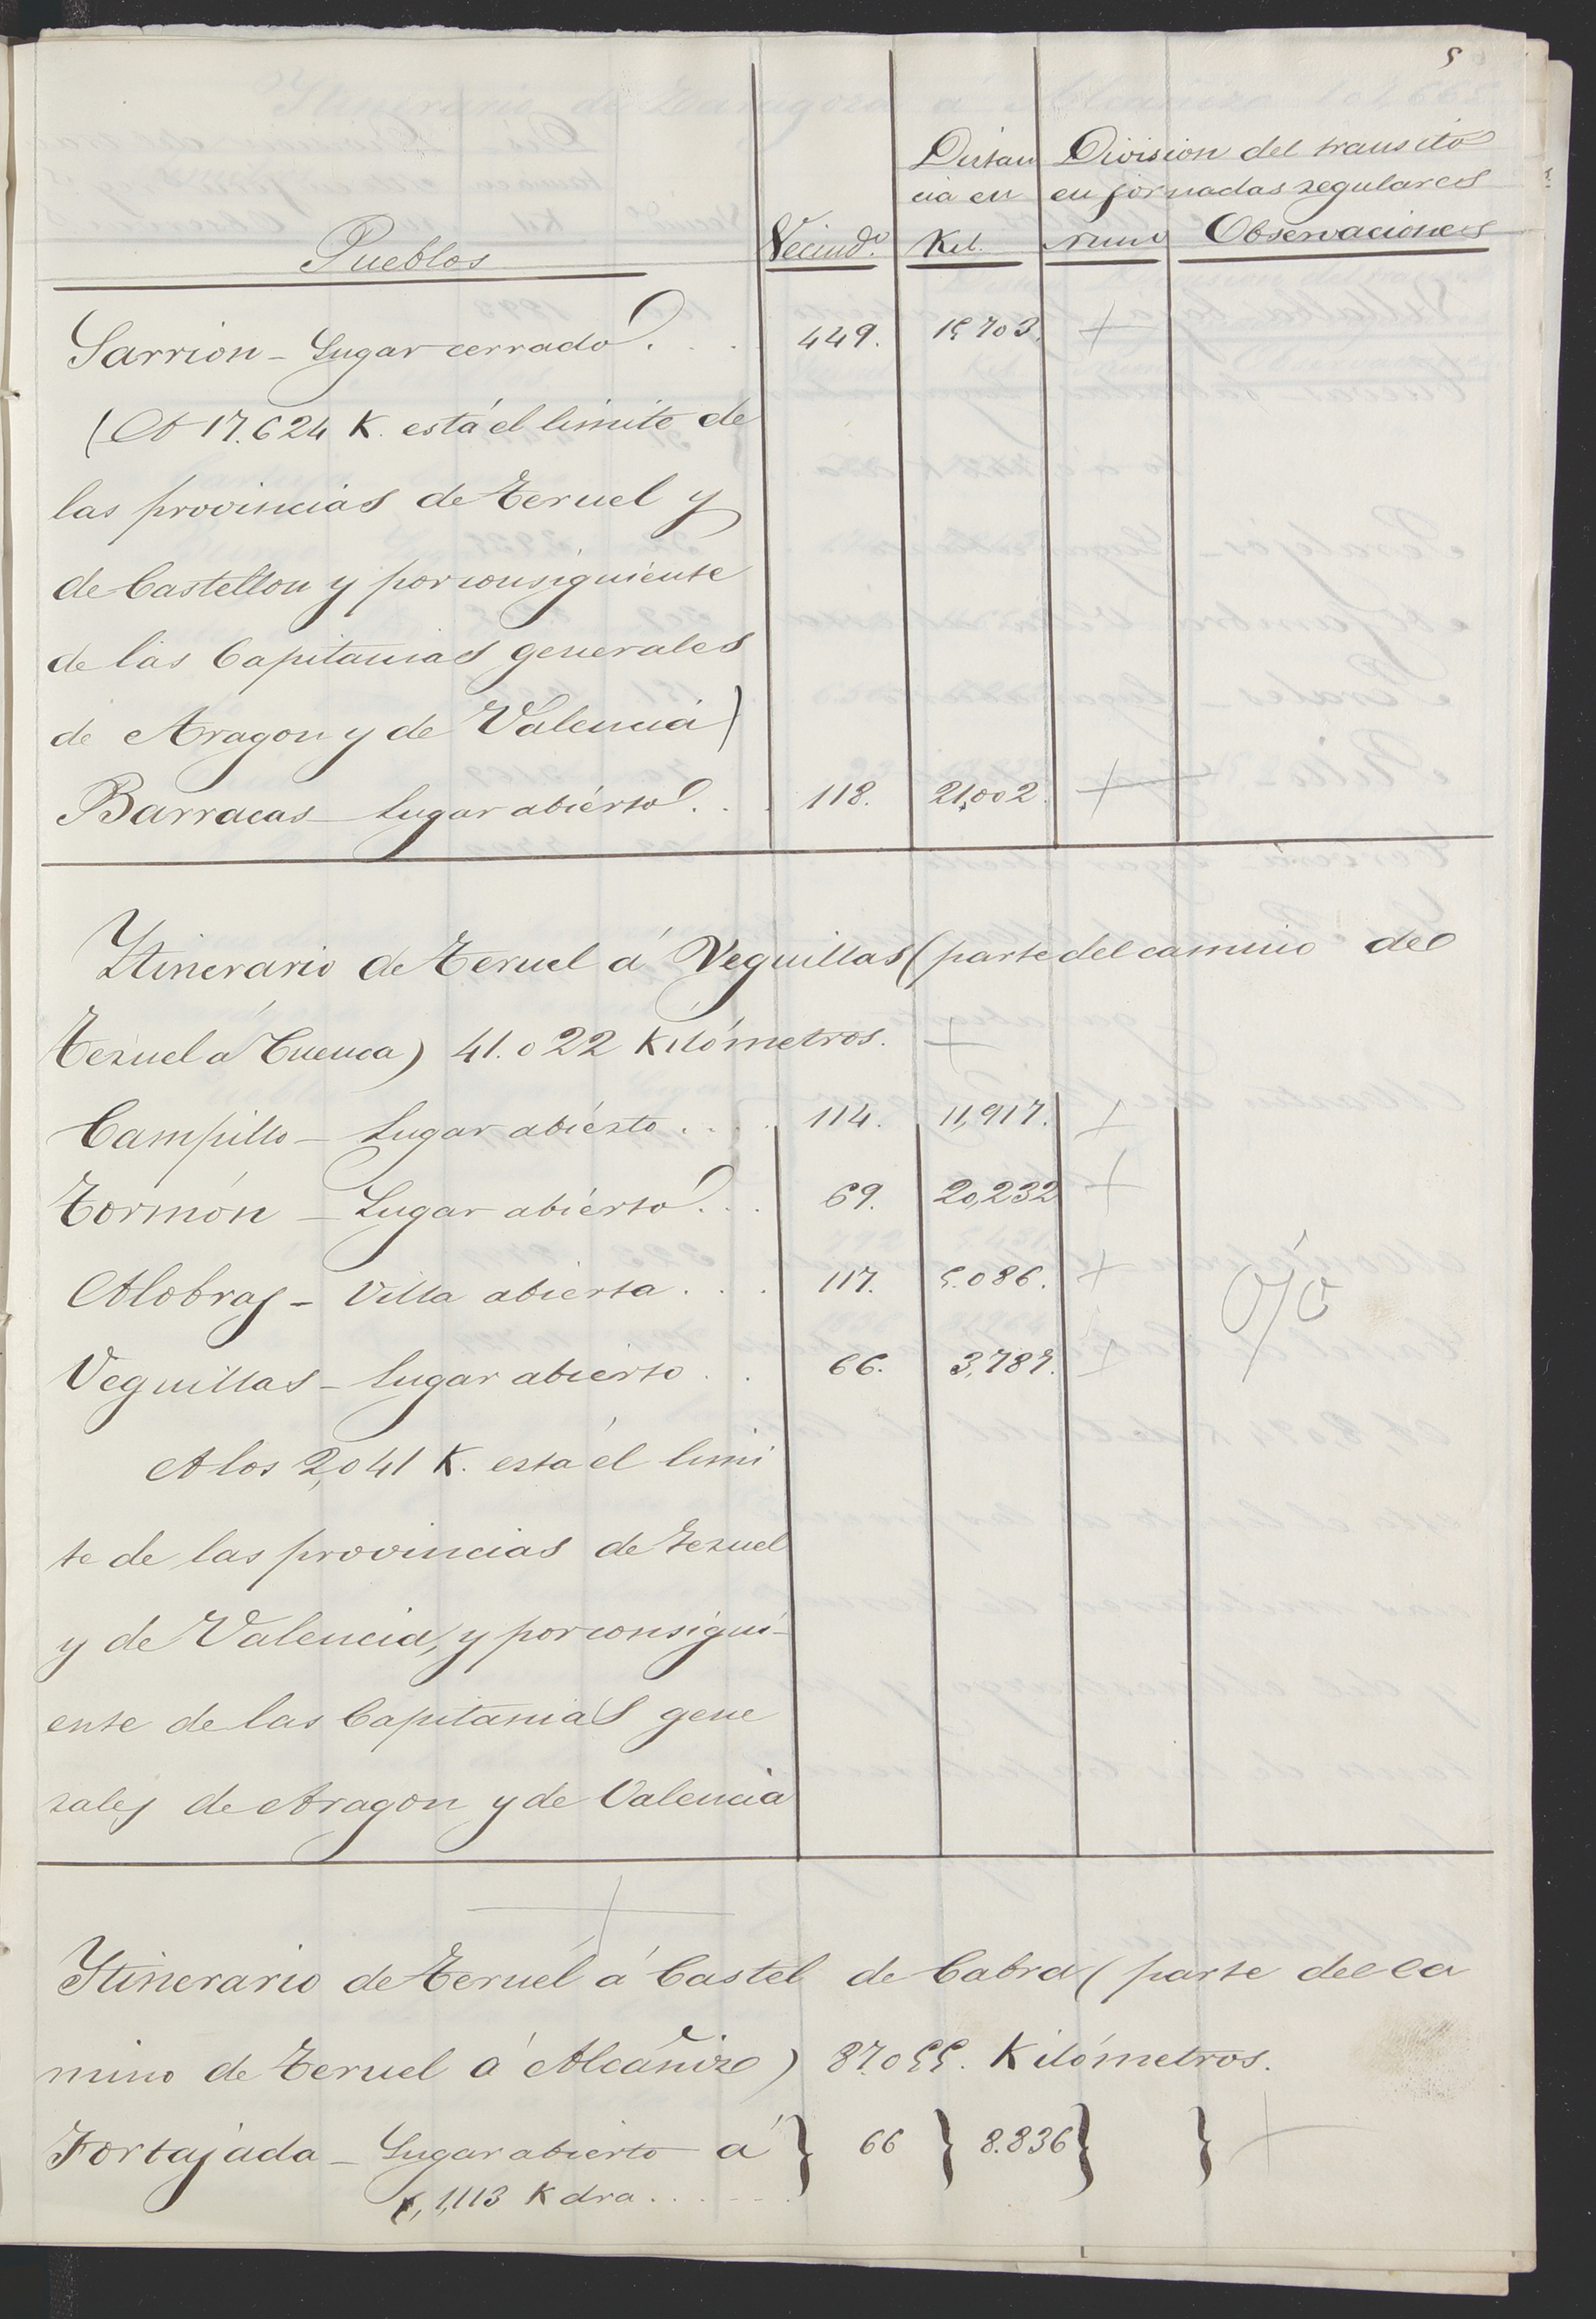 5
Distan División del transito
cia en en jornadas regulares
Pueblos Vecindº. Kil. num Observaciones
Sarrion - Lugar cerrado. . . 449. 15,703. +
(A 17.624 K. está el limite de
las provincias de Teruel y
de Castellon y por consiguiente
de las Capitanias generales
de Aragon y de Valencia)
Barracas - Lugar abierto. . . 118. 21,002. +
Itinerario de Teruel á Veguillas (parte del camino del
Teruel á Cuenca) 41.022 Kilómetros. +
Campillo - Lugar abierto. . . . 114. 11,917. +
Tormón - Lugar abierto. . . 69. 20,232 +
Alobras - Villa abierta. . . 117. 5.086. +
Veguillas - Lugar abierto. . . 66. 3,787. +
A los 2,041 K. está el limi
te de las provincias de Teruel
y de Valencia, y por consigui-
ente de las Capitanias gene
rales de Aragon y de Valencia
+
Itinerario de Teruel á Castel de Cabra (parte del ca
mino de Teruel á Alcañiz) 87.055. Kilómetros.
Tortajada - Lugar abierto á } 66 } 8.836 } } +
1,113 K dra. . . . . .